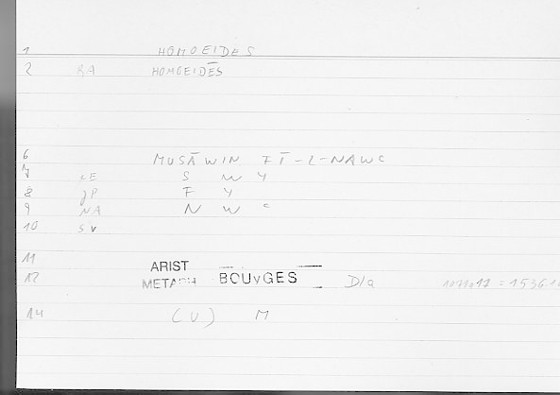 1 HOMOEIDES
2 RA HOMOEIDĒS
6 MUSĀWIN FĪ-L-NAWC
7 LE S W Y
8 JP F Y
9 NA N W C
10 SV
11
12 ARIST METAPH BOUYGES D1a = 1536.10
14 (U) M